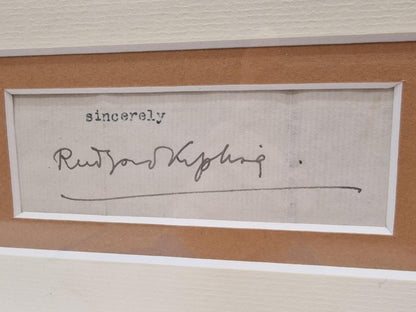 sincerely
Rudyard Kipling.